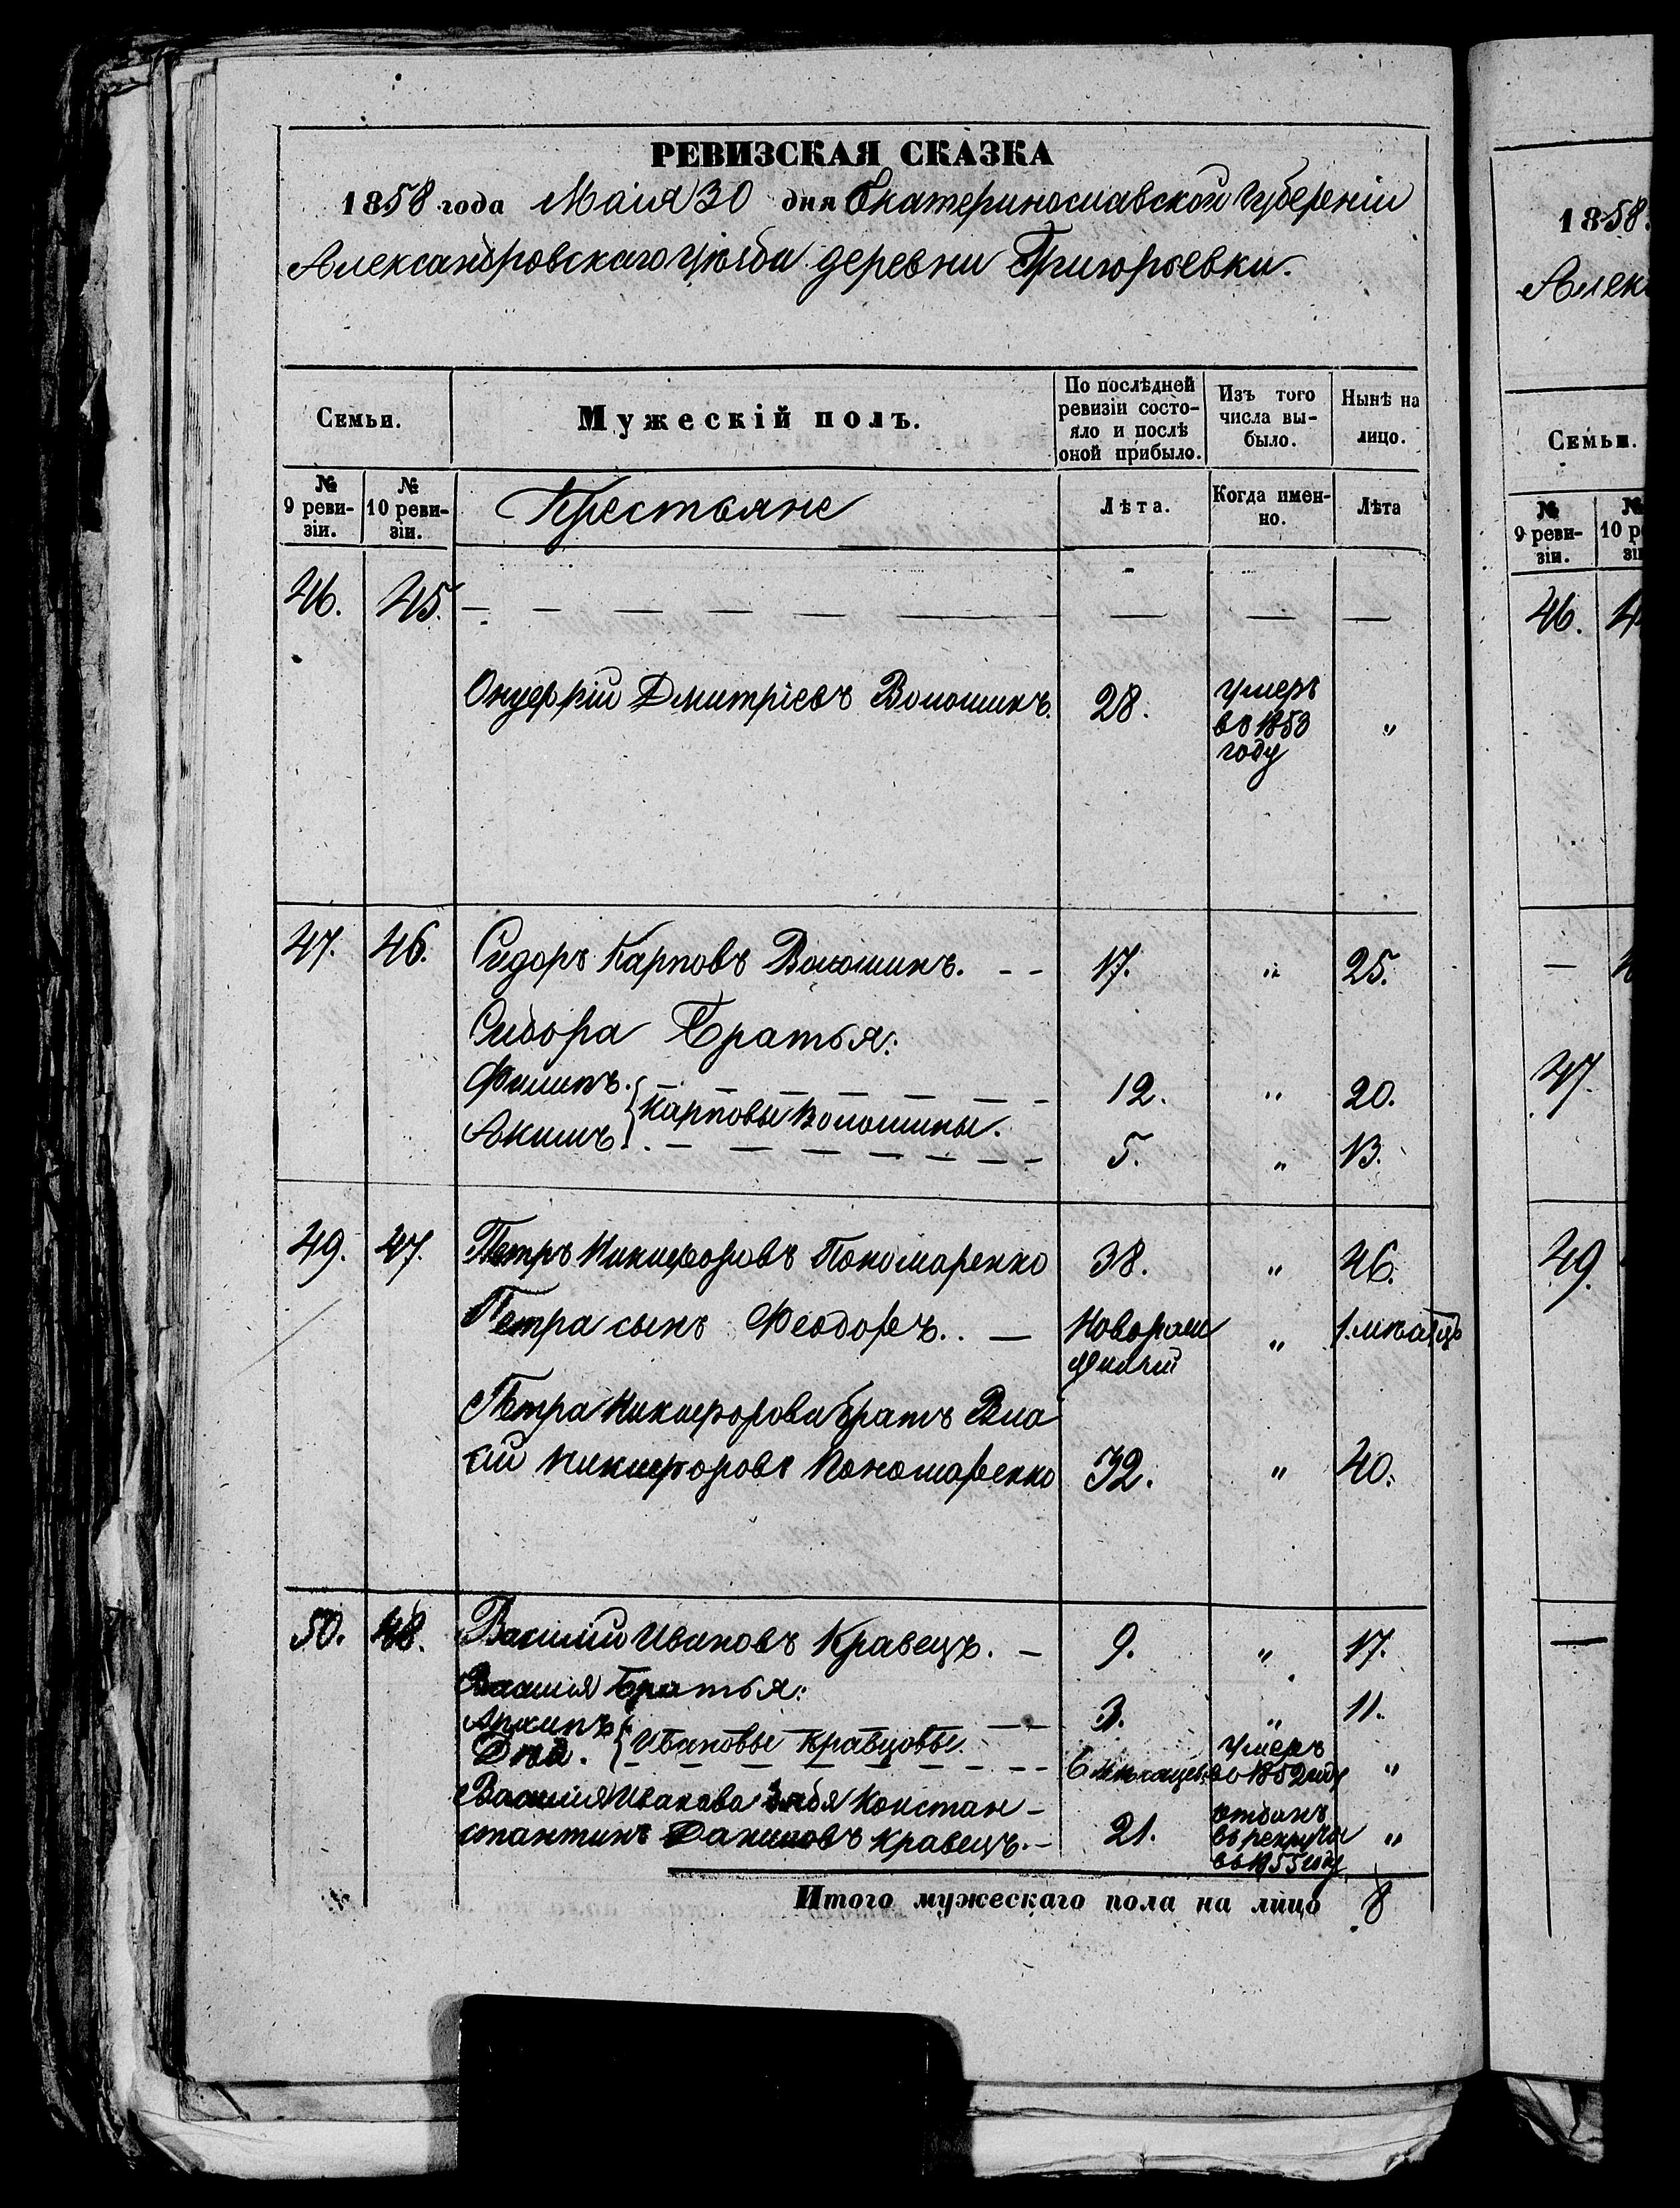 РЕВИЗСКАЯ СКАЗКА
1858 года Маія 30 дня Екатеринославской Губерніи
Александровскаго уѣзда деревни Григорьевки.
Семьи.
Мужескій полъ.
По послѣдней ревизіи состояло и послѣ оной прибыло.
Изъ того числа выбыло.
Нынѣ на лицо.
№ 9 ревизіи.
№ 10 ревизіи.
Крестьяне
Лѣта.
Когда именно.
Лѣта
46. 45. — — — — — — — — —
Онуфрій Дмитріевъ Волошинъ. 28. умеръ въ 1853 году "
47. 46. Сидоръ Карповъ Волошинъ. - - 17. " 25.
Сидора Братья:
Филипъ. — — — — — 12. " 20.
Карповы Волошины.
Акимъ. — — — — — 5. " 13.
49. 47. Петръ Никифоровъ Пономаренко 38. " 46.
Петра сынъ Феодоръ.. — Новорож " 1. мѣсяцъ
Петра Никифорова братъ Вла
сій Никифоровъ Пономаренко 32. " 40.
50. 48. Василій Ивановъ Кравецъ. - 9. " 17.
Василія братья:
Архипъ — — 3. " 11.
Ивановы Кравцовы.
6 мѣсяцев. умеръ въ 1852 году "
Василія Иванова дядя Констан-
стантинъ Даниловъ Кравецъ.- 21. отданъ въ рекруты въ 1855 году "
Итого мужескаго пола на лицо 8
1858.
Алек
Семьи.
№ 9 ревизіи.
№ 10 р
46. 4
—
47.
49.
—